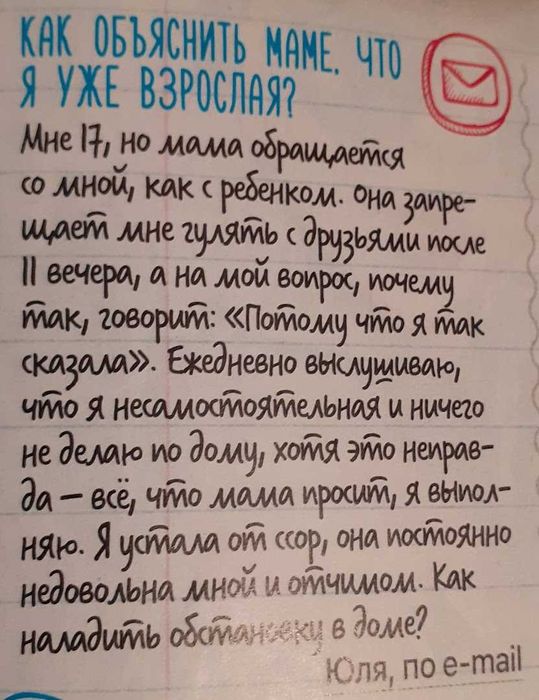 КАК ОБЪЯСНИТЬ МАМЕ, ЧТО
Я УЖЕ ВЗРОСЛАЯ?
Мне 17, но мама обращается
со мной, как с ребенком. Она запре-
щает мне гулять с друзьями после
11 вечера, а на мой вопрос, почему
так, говорит: «Потому что я так
сказала». Ежедневно выслушиваю,
что я несамостоятельная и ничего
не делаю по дому, хотя это неправ-
да — всё, что мама просит, я выпол-
няю. Я устала от ссор, она постоянно
недовольна мной и отчимом. Как
наладить обстановку в доме?
Юля, по e-mail